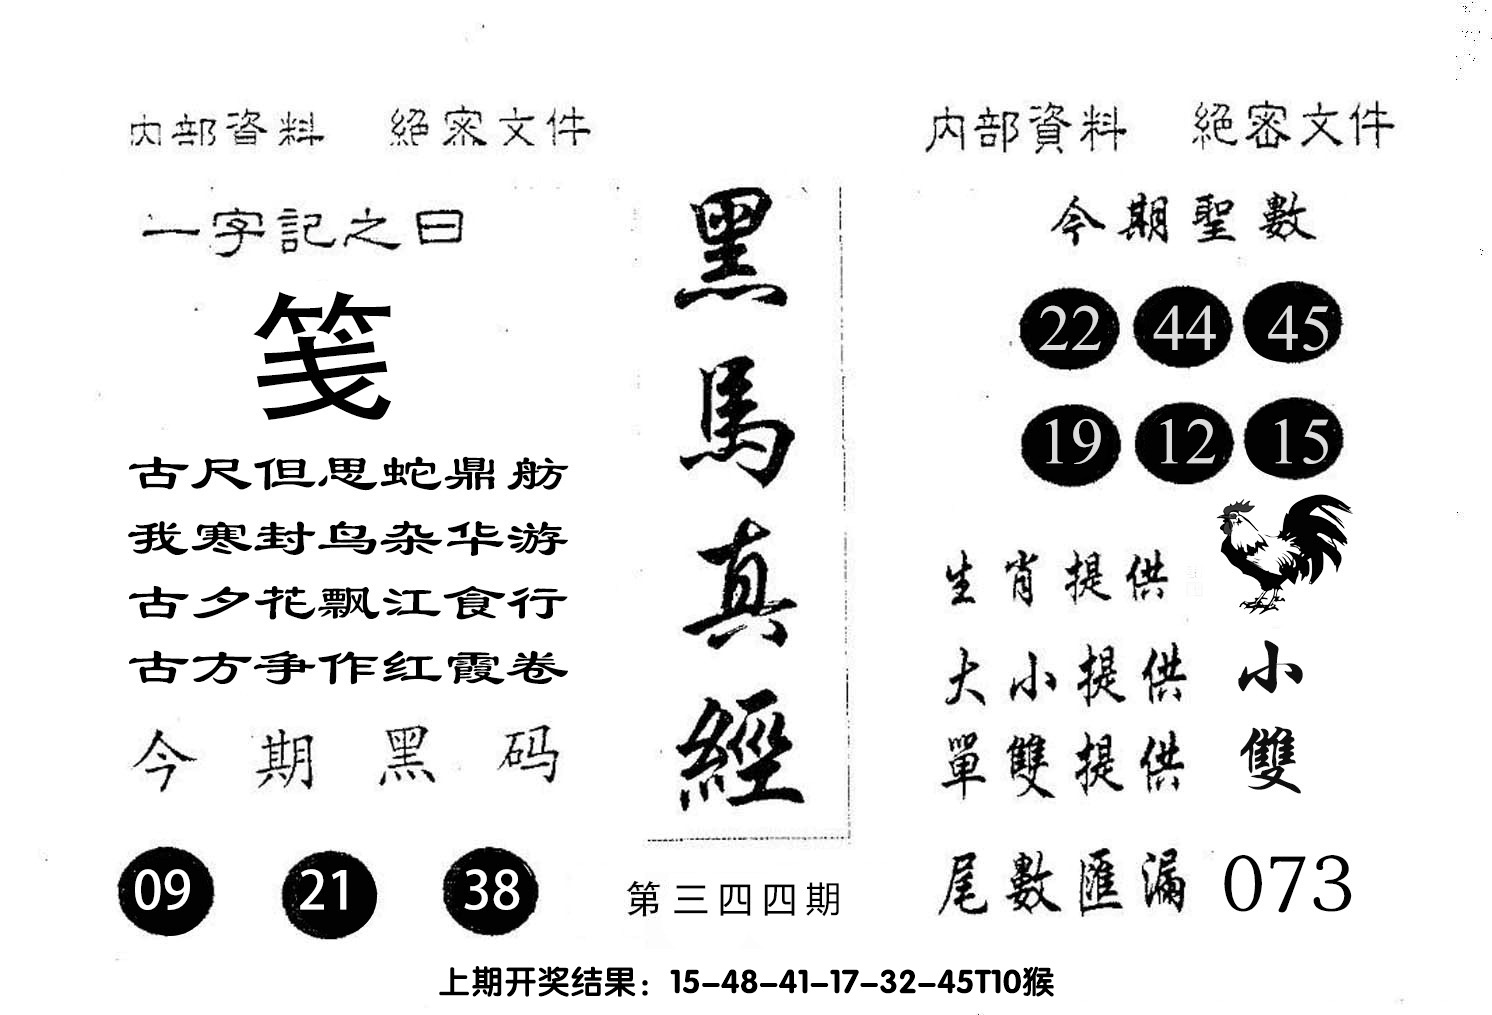 内部資料 絕密文件
一字記之曰
笺
古尺但思蛇鼎舫
我寒封鸟杂华游
古夕花飘江食行
古方争作红霞卷
今期黑码
09 21 38
黑馬真經
第三四四期
内部資料 絕密文件
今期聖數
22 44 45
19 12 15
生肖提供
大小提供 小
單雙提供 雙
尾數匯漏 073
上期开奖结果：15-48-41-17-32-45T10猴